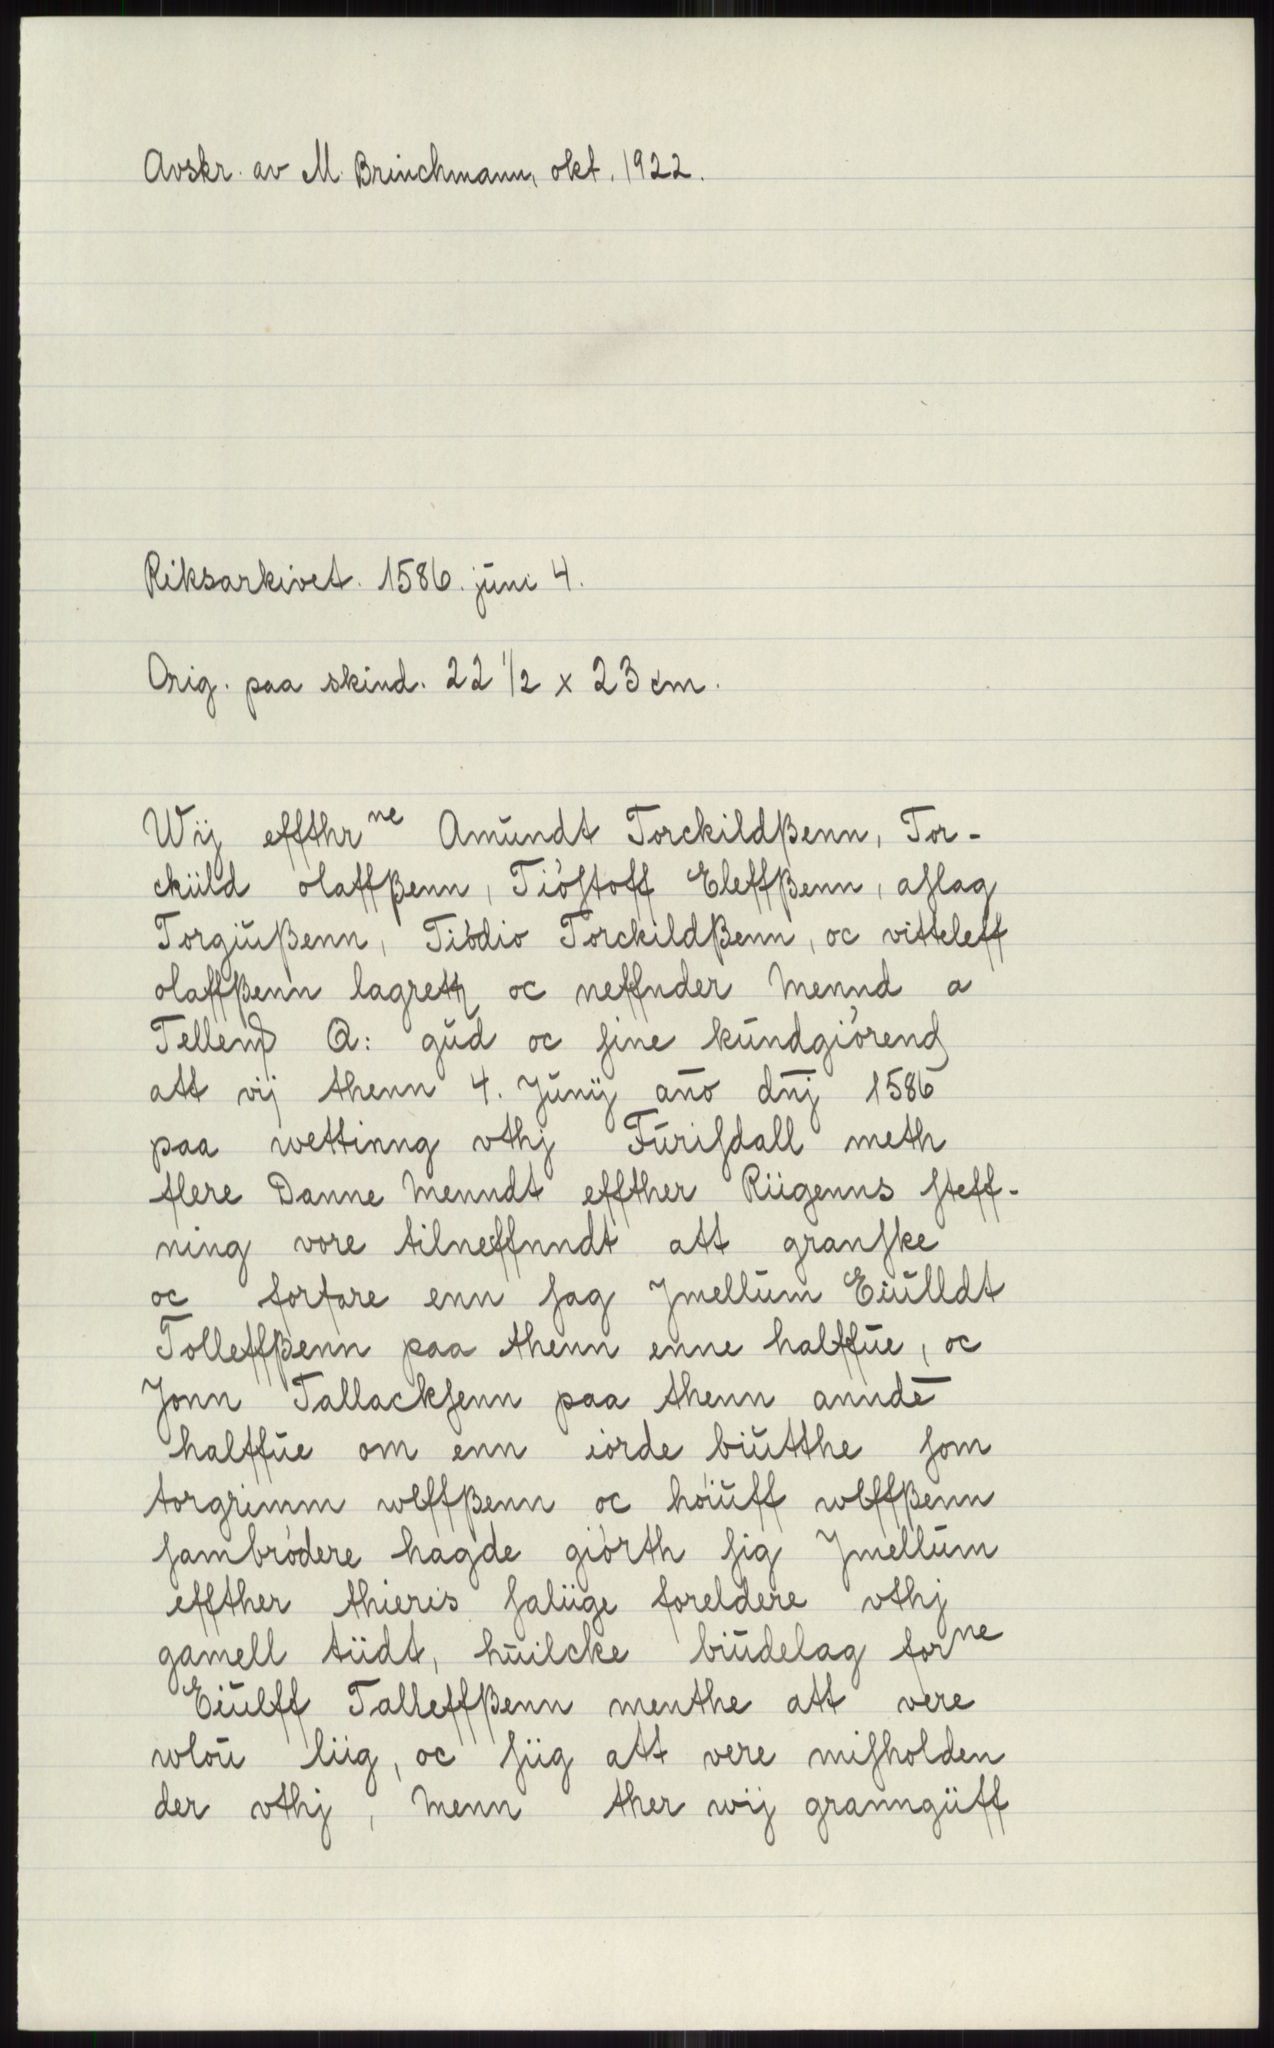 Avskr. av M. Brinchmann, okt. 1922.
Riksarkivet. 1586. juni 4.
Orig. paa skind. 22 1/2 x 23 cm.
Wij effthr ne Amŭndt Torckildßenn, Tor-
ckiild olaffßenn, Tióstoff Eleffßenn, aslag
Torgiŭßenn, Tiódio Torckildßenn, oc vitteleff
olaffßenn lagrettz oc neffnder Mennd a
Tellem Q: gŭd oc sine kŭndgiórend
att vij thenn 4. Jŭnij año dnj 1586
paa wettinng vthj Fŭrisdall meth
flere Danne Menndt effther Riigenns steff-
ning vore tilneffnndt att granske
oc forfare enn sag Jmellŭm Eiŭlldt
Tolleffßenn paa thenn enne halffŭe, oc
Jonn Tallacksenn paa thenn annde
halffŭe om enn iórde biŭtthe som
torgrimm wlffßenn oc hóiŭff wlffßenn
sambródere hagde giórth sig Jmellŭm
effther thieris saliige foreldere vthj
gamell tiidt, hŭilcke biŭdelag for ne
Eiŭlff Talleffßenn menthe att vere
wloŭ liig, oc siig att vere misholden
der vthj, Menn ther wij granngiiff